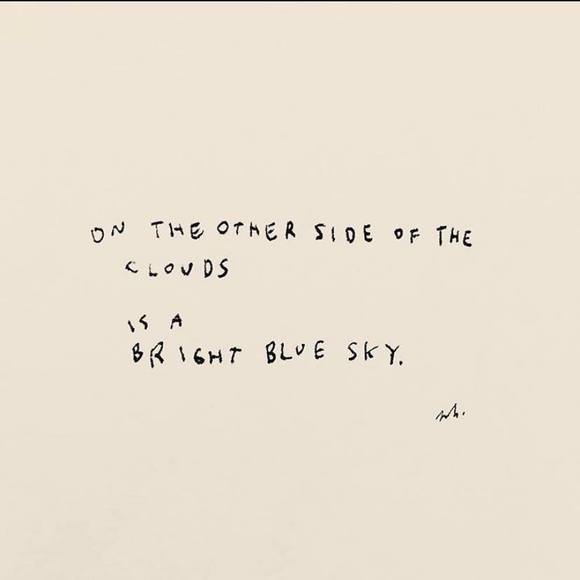 ON THE OTHER SIDE OF THE
CLOUDS
IS A
BRIGHT BLUE SKY.